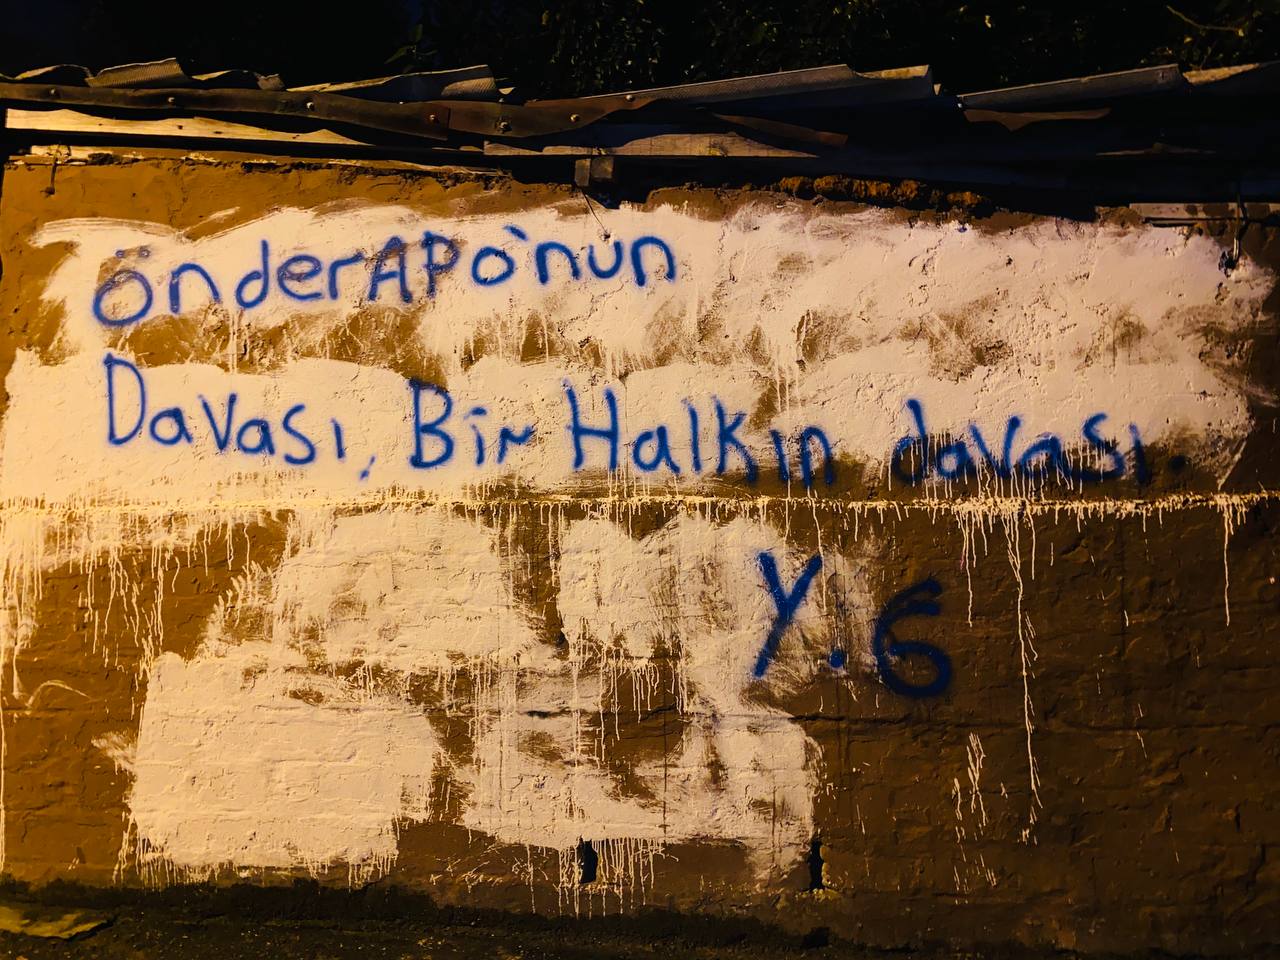 önderAPO'nun
Davası, Bir Halkın davası.
Y.G